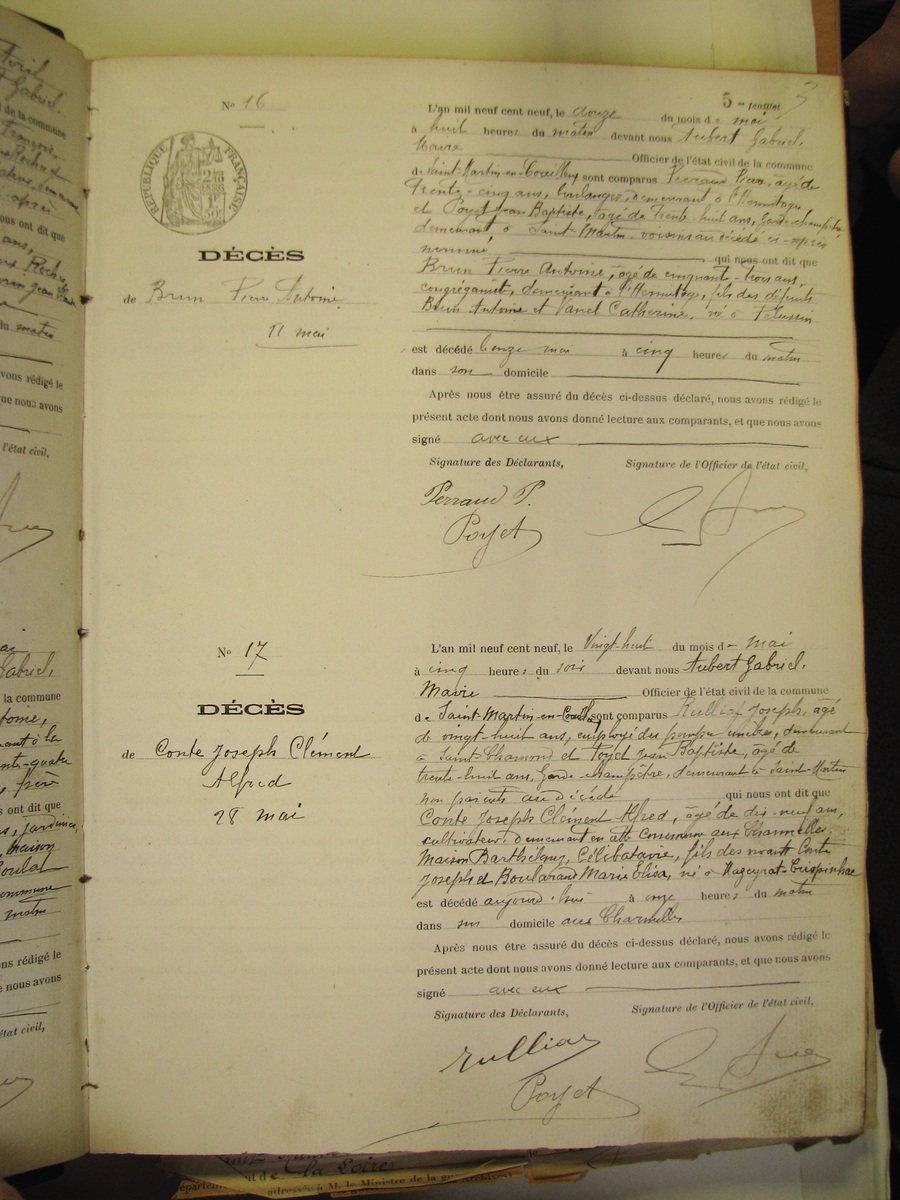 5me feuillet
No 16
RÉPUBLIQUE FRANÇAISE
DÉCÈS
de Brun Pierre Antoine
11 mai
L'an mil neuf cent neuf, le douze du mois de mai
à huit heures du matin devant nous Aubert Gabriel,
Maire Officier de l'état civil de la commune
de Saint-Martin-en-Coailleux sont comparus Perraud Pierre, âgé de
trente-cinq ans, boulanger, demeurant à l'Hermitage
et Poyet Jean Baptiste, âgé de trente-huit ans, Garde-champêtre
demeurant à Saint-Martin, voisins au décédé ci-après
nommé qui nous ont dit que
Brun Pierre Antoine, âgé de cinquante-trois ans,
congréganiste, demeurant à l'Hermitage, fils des défunts
Brun Antoine et Vanel Catherine, né à Pélussin
est décédé le onze mai à cinq heures du matin
dans son domicile
Après nous être assuré du décès ci-dessus déclaré, nous avons rédigé le
présent acte dont nous avons donné lecture aux comparants, et que nous avons
signé avec eux
Signature des Déclarants, Signature de l'Officier de l'état civil,
Perraud P.
Poyet
No 17
DÉCÈS
de Conte Joseph Clément
Alfred
28 mai
L'an mil neuf cent neuf, le vingt-huit du mois de mai
à cinq heures du soir devant nous Aubert Gabriel,
Maire Officier de l'état civil de la commune
de Saint-Martin-en-Coailleux sont comparus Rullias Joseph, âgé
de vingt-huit ans, employé des pompes funèbres, demeurant
à Saint-Chamond et Poyet Jean Baptiste, âgé de
trente-huit ans, Garde-champêtre, demeurant à Saint-Martin
non parents au décédé qui nous ont dit que
Conte Joseph Clément Alfred, âgé de dix-neuf ans,
cultivateur, demeurant en cette commune aux Charmelles,
Maison Barthélemy, Célibataire, fils des vivants Conte
Joseph et Boularand Marie Elisa, né à
est décédé aujourd'hui à onze heures du matin
dans son domicile aux Charmelles
Après nous être assuré du décès ci-dessus déclaré, nous avons rédigé le
présent acte dont nous avons donné lecture aux comparants, et que nous avons
signé avec eux
Signature des Déclarants, Signature de l'Officier de l'état civil,
Rullias
Poyet
de la Loire
adressée à M. le Ministre de la